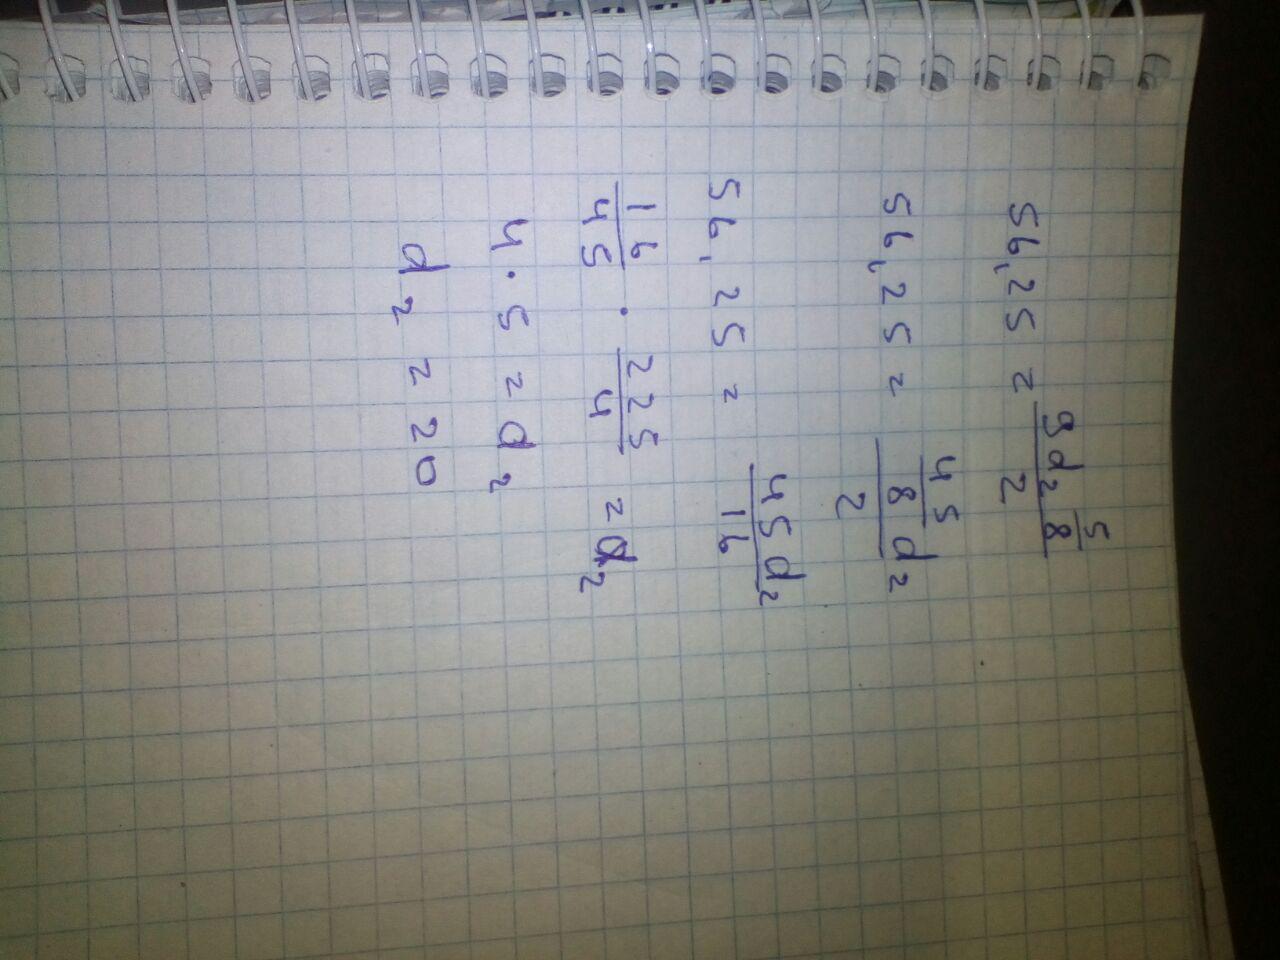 56,25 = \frac{9d_2 \frac{5}{8}}{2}
56,25 = \frac{\frac{45}{8} d_2}{2}
56,25 = \frac{45d_2}{16}
\frac{16}{45} · \frac{225}{4} = d_2
4 · 5 = d_2
d_2 = 20